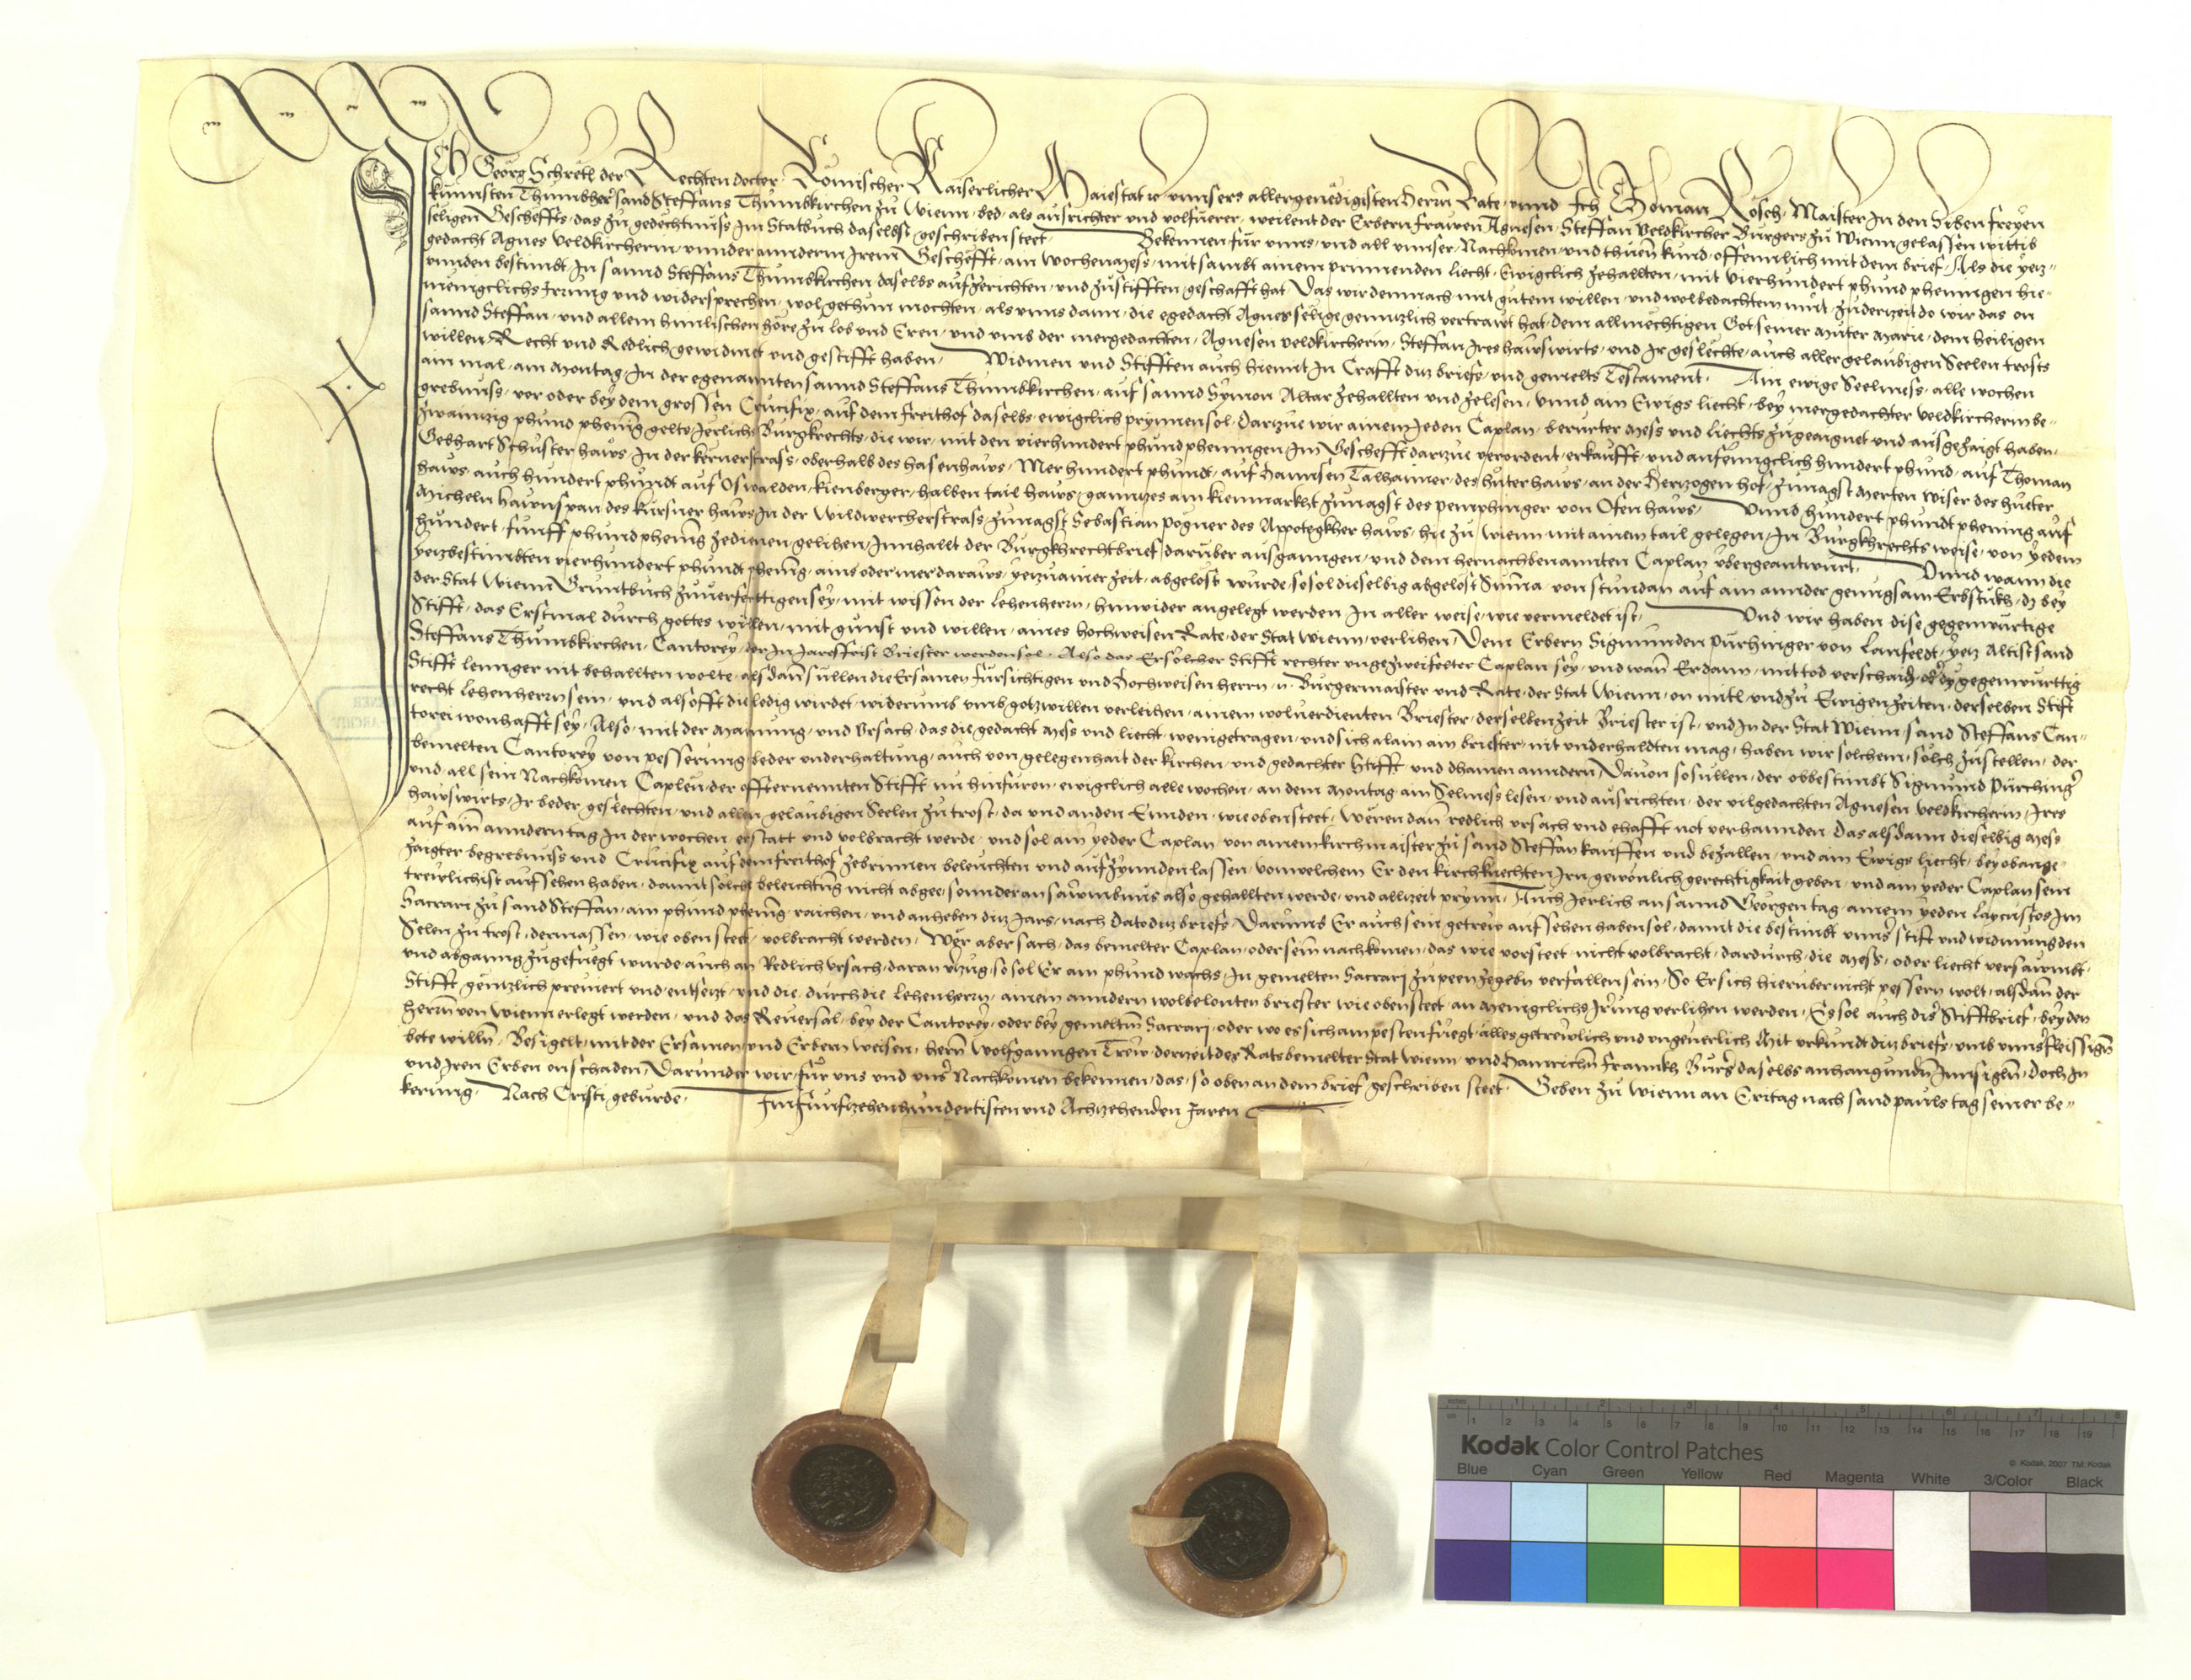 Ich Georg Schrëtl der Rechten doctor Römischer Kaiserlicher Maiestat ꝛc vnnsers allergenëdigisten Herrn Rate vnnd Ich Thoman Rösch Maister In den Siben freyen
kunnsten Thumbherr sand Steffans Thumbkirchen zu Wienn bed als ausrichter vnd volfüerer weilent der Erbern frawen Agnesen Steffan Veldkircher Burgers zu Wienn gelassen wittib
seligen Gescheffts das zu gedechtnuss Im Statbuch daselbst geschriben steet Bekennen für vnns vnd all vnnser Nachkomen vnd thuen kund offennlich mit dem brief Als die yetz-
gedacht Agnes Veldkircherin vnnder anndern Irem Gescheft ain wochenmess mitsambt ainem prinnenden liecht Ewigclich zehallten mit vierhundert phund phenningen hie-
vnnden bestimbt In sannd Steffans Thumbkirchen daselbs aufzerichten vnd zustifften geschafft hat Das wir demnach mit gutem willen vnd wolbedachtem muet zuderzeit do wir das on
menigclichs Irrung vnd widersprechen wol gethun mochten als vnns dann die egedacht Agnes selige genntzlich vertrawt hat dem allmechtigen Got seiner muter Marie dem heiligen
sannd Steffan vnd allem himlischen höre zu lob vnd Eren vnd vmb der mergedachten Agnesen Veldkircherin Steffan Ires hawswirts vnd Ir geslechte auch aller gelaubigen Seelen trosts
willen Recht vnd Redlich gewidmet vnd gestifft haben Widmen vnd Stifften auch hiemit In Crafft ditz briefs vnd gemelts Testament Ain ewige Seelmess alle wochen
ain mal am Montag In der egenannten sannd Steffans Thumbkirchen auf sannd Symon Altar zehallten vnd zelesen vnnd ain Ewigs liecht bey mergedachter Veldkircherin be-
grebnuss vor oder bey dem grossen Crucifix auf dem freithof daselbs ewigclich prynnen sol Dartzue wir ainem Jeden Caplan berurter Mess vnd liechts zugeaignet vnd ausgezaigt haben
zwaintzig phund phening gelts Jerlichs Burgkrechts die wir mit den vierhundert phund phenningen Im Geschefft dartzue verordent erkaufft vnd anfenngclich hundert phund auf Thoman
Gebhart Schuster haws In der kernerstrass oberhalb des hasenhaws Mer hundert phundt auf Hannsen Talhaimer des huter haws an der Hertzogen hof zunagst Merten Wiser des huter
haws auch hundert phundt auf Oswalden kienberger halben tail haws ganntzes am kienmarkht zunagst des pemphinger von Ofen haws Vnnd hundert phundt phening auf
Micheln hawnspan des kürsner haws In der Wildwercherstrass zunagst Sebastian pogner des Appotegkher haws hie zu Wienn mit ainem tail gelegen In Burgkhrechts weise von yedem
hundert funff phund phening zedienen gelihen Innhallt der Burgkhrechtbrief darüber ausganngen vnd dem hernachbenannten Caplan übergeantwurt Vnnd wann die
yetzbestimbten vierhundert phundt phening ains oder mer daraws yetzuainer zeit abgelöst wurde so sol dieselbig abgelöst Suma von stundan auf ain annder genugsam Erbstukh ds bey
der Stat Wienn Gruntbuch zuuerfertigen sey mit wissen der Lehenherrn hinwider angelegt werden In aller weise wie vermeldet ist Vnd wir haben dise gegenwurtige
Stifft das Erstmal durch gottes willen mit gunst vnd willen aines hochweisen Rate der Stat Wienn verlihen Dem Erbern Sigmunden Pürchinger von Lanfeldt yetz Altist sand
Steffans Thumbkirchen Cantorey der In Jarsfrist Briester werden sol Also das Er solcher Stifft rechter vngezweifelter Caplan sey vnd wann Er dann mit tod verschaid oder dy gegenwurttig
Stifft lennger nit behallten wolte als dann sullen die Ersamen fursichtigen vnd Hochweisen herrn n Burgermaister vnd Rate der Stat Wienn on mitl vnd zu Ewigen zeiten derselben Stift
recht Lehenherrn sein vnd alsofft die ledig wirdet widerumb vmb gotzwillen verleihen ainem wolverdienten Briester derselben zeit Briester ist vnd In der Stat Wienn sand Steffans Can-
torei wonhafft sey Also mit der maynung vnd Vrsach das die gedacht Mess vnd liecht wenig tragen vnd sich alain ain briester nit vnderhaldten mag haben wir solchem solch zustellen der
bemelten Cantorey von pesserung beder vnderhaltung auch von gelegenhait der kirchen vnd gedachter Stifft vnd dhainen anndern Dauon so sullen der obbestimbt Sigmund Pürchinger
vnd all sein Nachkomen Caplen der offternennten Stifft nu hinfuron ewigclich alle wochen an dem Montag ain Selmess lesen vnd ausrichten der vilgedachten Agnesen Veldkircherin Ires
hawswirts Ir beder geslechten vnd allen gelaubigen Seelen zu trost da vnd an den Ennden wie oben steet Weren dann redlich vrsach vnd ehafft not verhannden Das als dann dieselbig Mess
auf ain anndern tag In der wochen erstatt vnd volbracht werde vnd sol ain yeder Caplan von ainem kirchmaister zu sand Steffan kauffen vnd bezallen vnd ain Ewigs liecht bey obange-
zaigter begrebnuss vnd Crucifix auf dem freithof zebrinnen beleuchten vnd aufzynnden lassen von welchem Er den kirchknechten Irn gewonlich gerechtigkait geben vnd ain yeder Caplan sein
trewlichist aufsehen haben damit solche beleichtung nicht abgee sonnder an sawmbnus also gehallten werde vnd allzeit prynn Auch Jerlich an sannd Georgen tag ainem yeden Laycustos Im
Sacrari zu sand Steffan ain phund phening raichen vnd anheben ditz Jars nach Dato ditz briefs Darumb Er auch sein getrew aufsehen haben sol damit die bestimbt vnnser stift vnd widmung den
Selen zu trost dermassen wie oben steet volbracht werden Wer aber sach das bemelter Caplan oder sein nachkomen das wie vorsteet nicht volbracht dardurch die Mess oder liecht versawmbt
vnd abganng zugefuegt wurde auch an Redlich vrsach daran vertzug so sol Er ain phund wachs In gemelten Sacrari zu peen zegeben verfallen sein So Er sich hierüber nicht pessern wolt als dann der
Stifft gentzlich preuiert vnd entsetzt vnd die durch die Lehenherrn ainem anndern wolbelonten briester wie oben steet an menigclichs Irrung verlihen werden Es sol auch dis Stifftbrief bey den
herrn von Wienn erlegt werden vnd das Reuersal bey der Cantorey oder bey gemeltm Sacrari oder wo es sich am pesten fuegt alles getrewlich vnd vngeuerlich Mit vrkundt ditz briefs vmb vnns fleissigen
bete willen Besigelt mit der Ersamen vnd Erbern weisen herrn Wolfganngen Trew derzeit des Rats bemelter Stat Wienn vnd Hainrichn Frannkh Burger daselbs anhangunden Innsigln Doch In
vnd Iren Erben on schaden Darunder wir für vns vnd vnser Nachkomen bekennen das so oben an dem brief geschriben steet Geben zu Wienn an Eritag nach sand pauls tag seiner be-
kerung Nach Cristi geburde Im funfzehenhundertisten vnd Achtzehenden Jaren
Kodak Color Control Patches
© Kodak, 2007 TM: Kodak
Blue Cyan Green Yellow Red Magenta White 3/Color Black